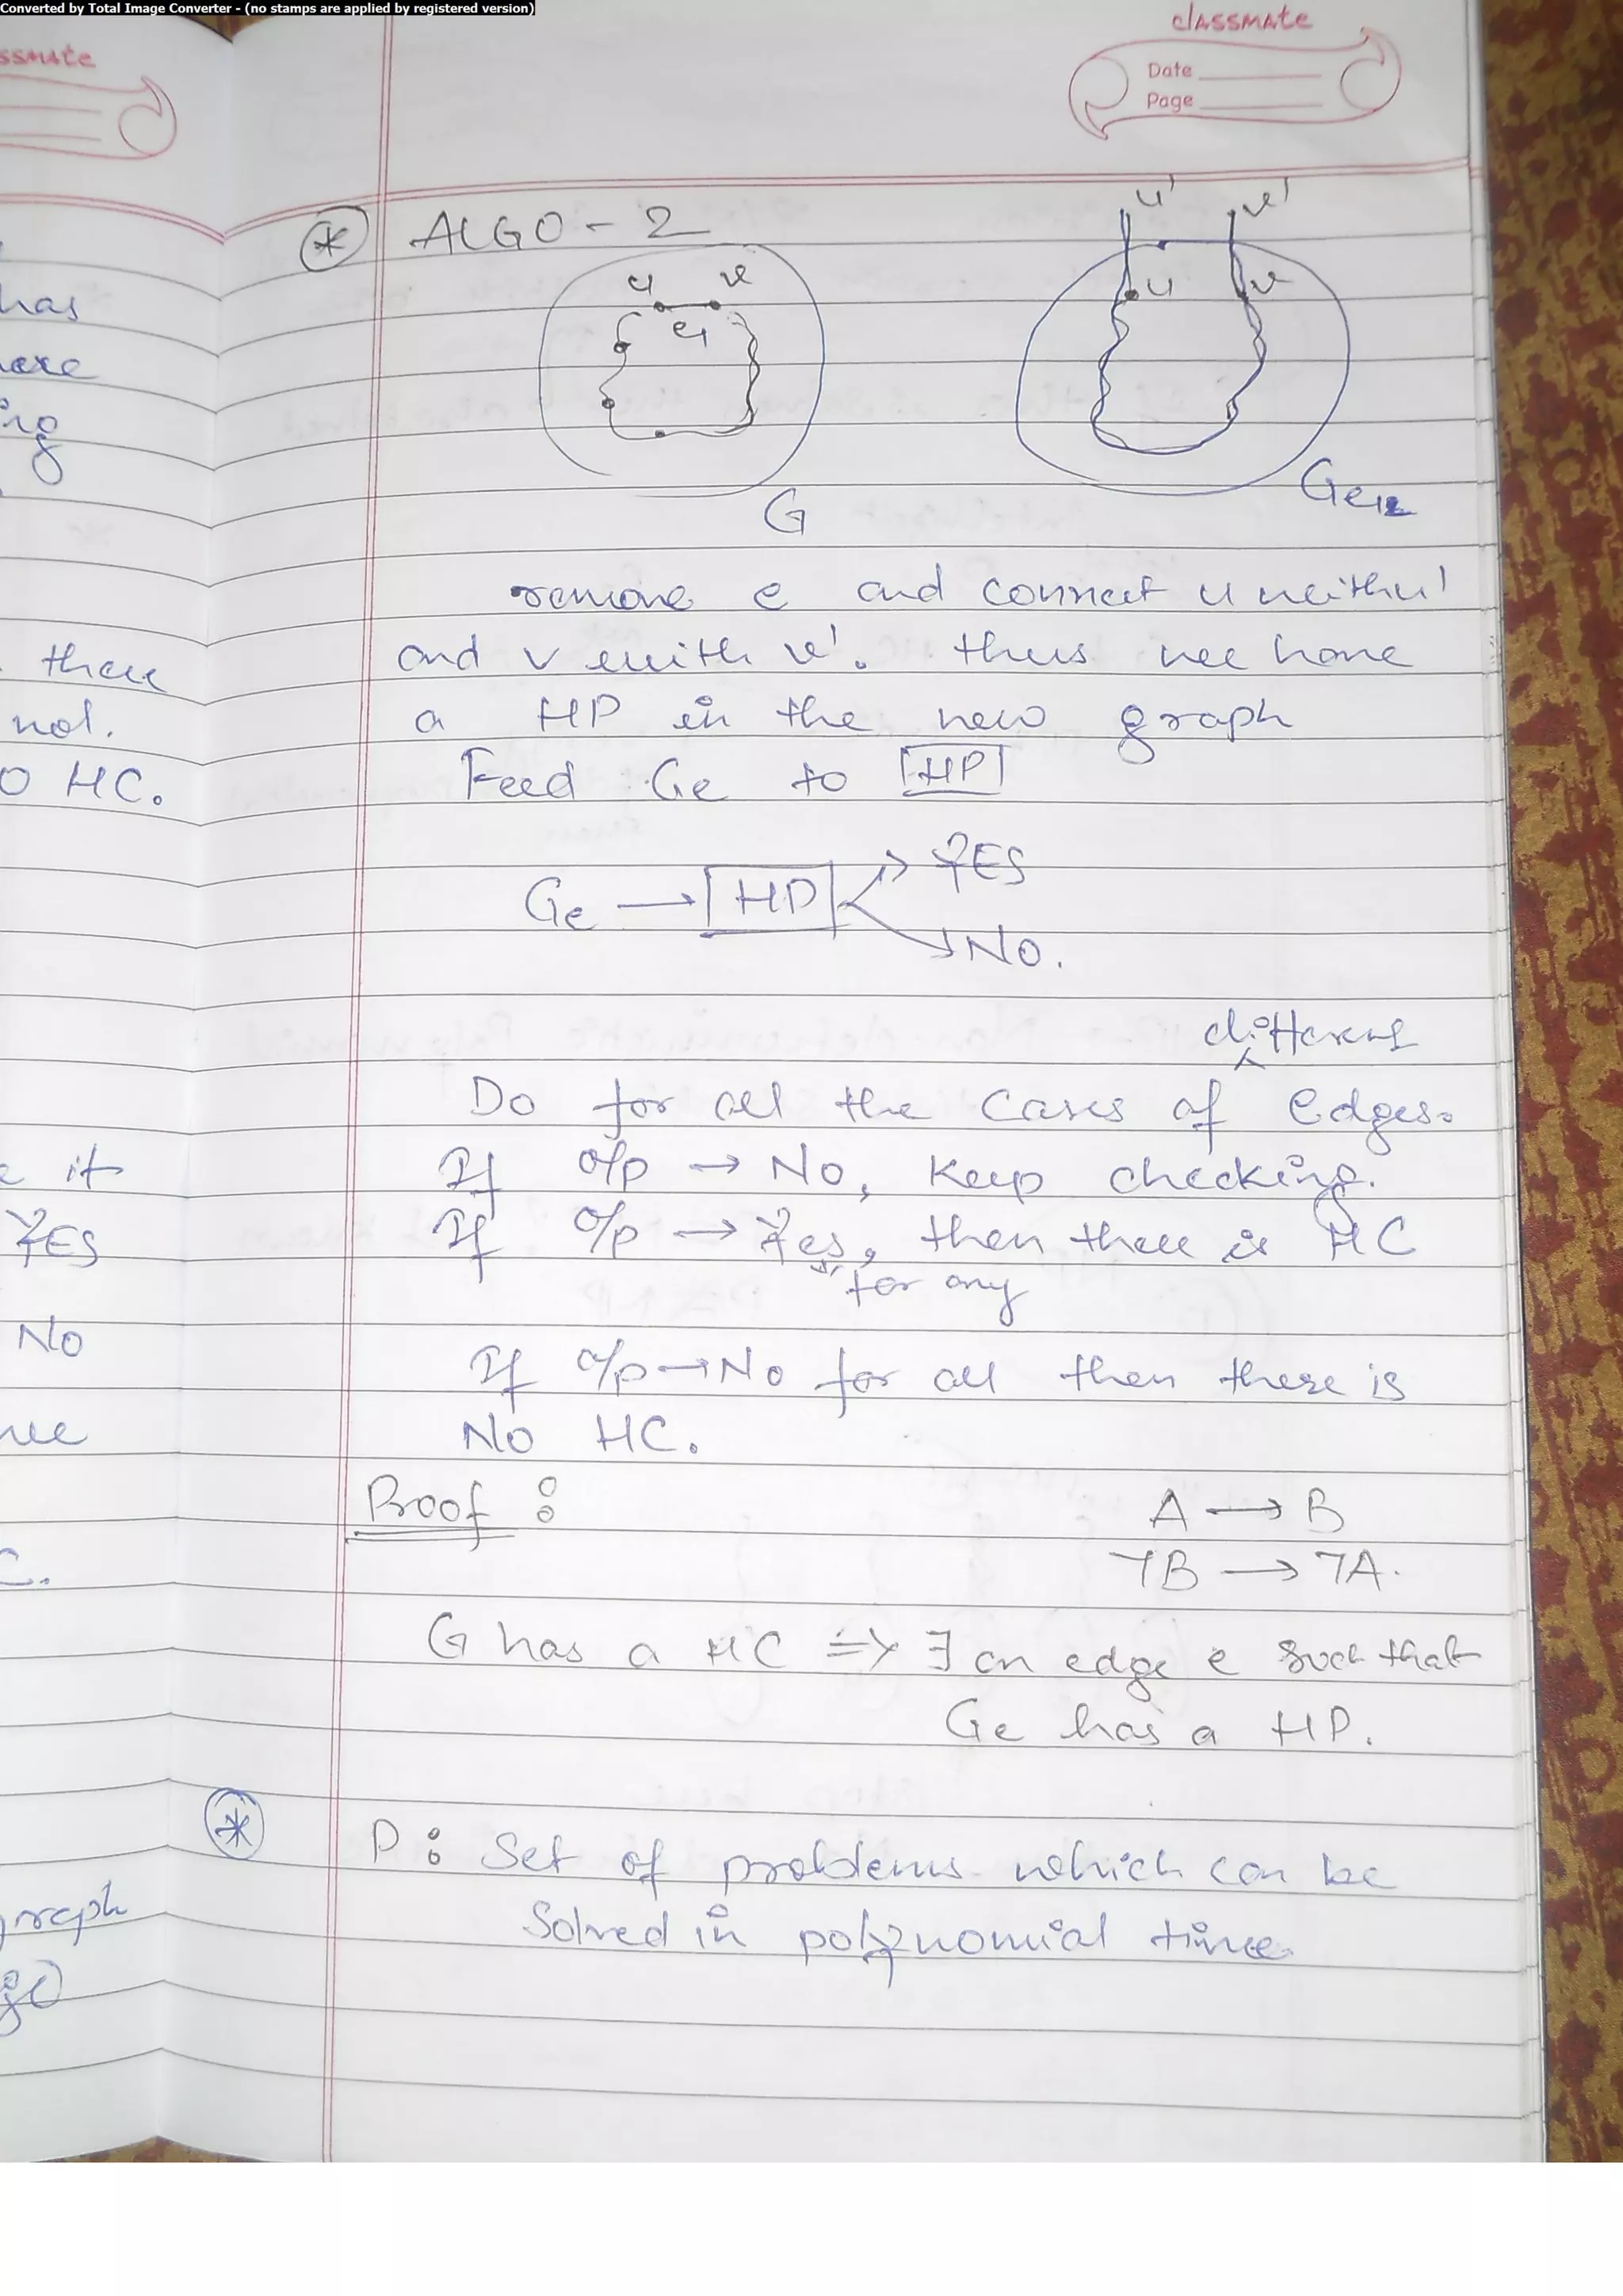 Converted by Total Image Converter - (no stamps are applied by registered version)
classmate
Date
Page
ssmate
has
there
not.
O HC.
it
YES
No
C.
graph
* ALGO-2
u v
e1
G
u' v'
u v
remove e and connect u with u'
and v with v'. thus we have
a HP in the new graph
Feed Ge to HP
Ge → HP
YES
No.
different
Do for all the cases of edges.
If o/p → No, keep checking.
If o/p → Yes, then there is HC
for any
If o/p → No for all then there is
No HC.
Proof :
A → B
¬B → ¬A.
G has a HC ⇒ ∃ an edge e such that
Ge has a HP.
* P : Set of problems which can be
solved in polynomial time.